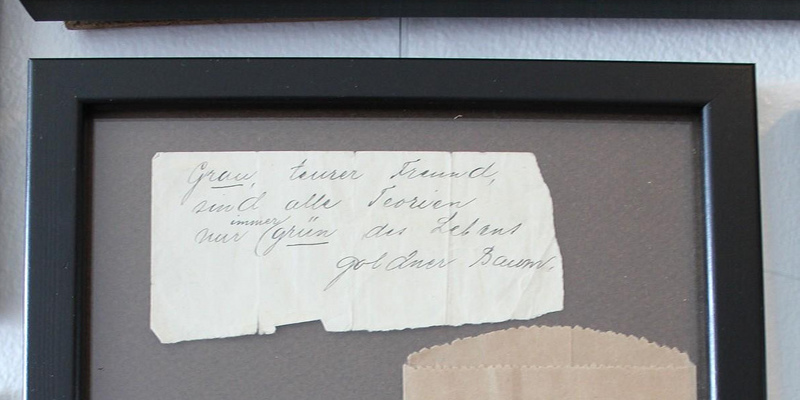 Grau, teurer Freund,
sind alle Teorien
immer
nur (grün des Lebens
goldner Baum.